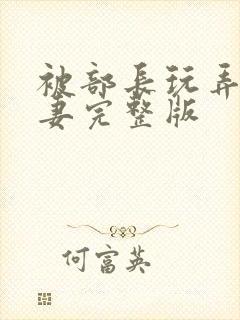 被部长玩弄
妻完整版
何富英